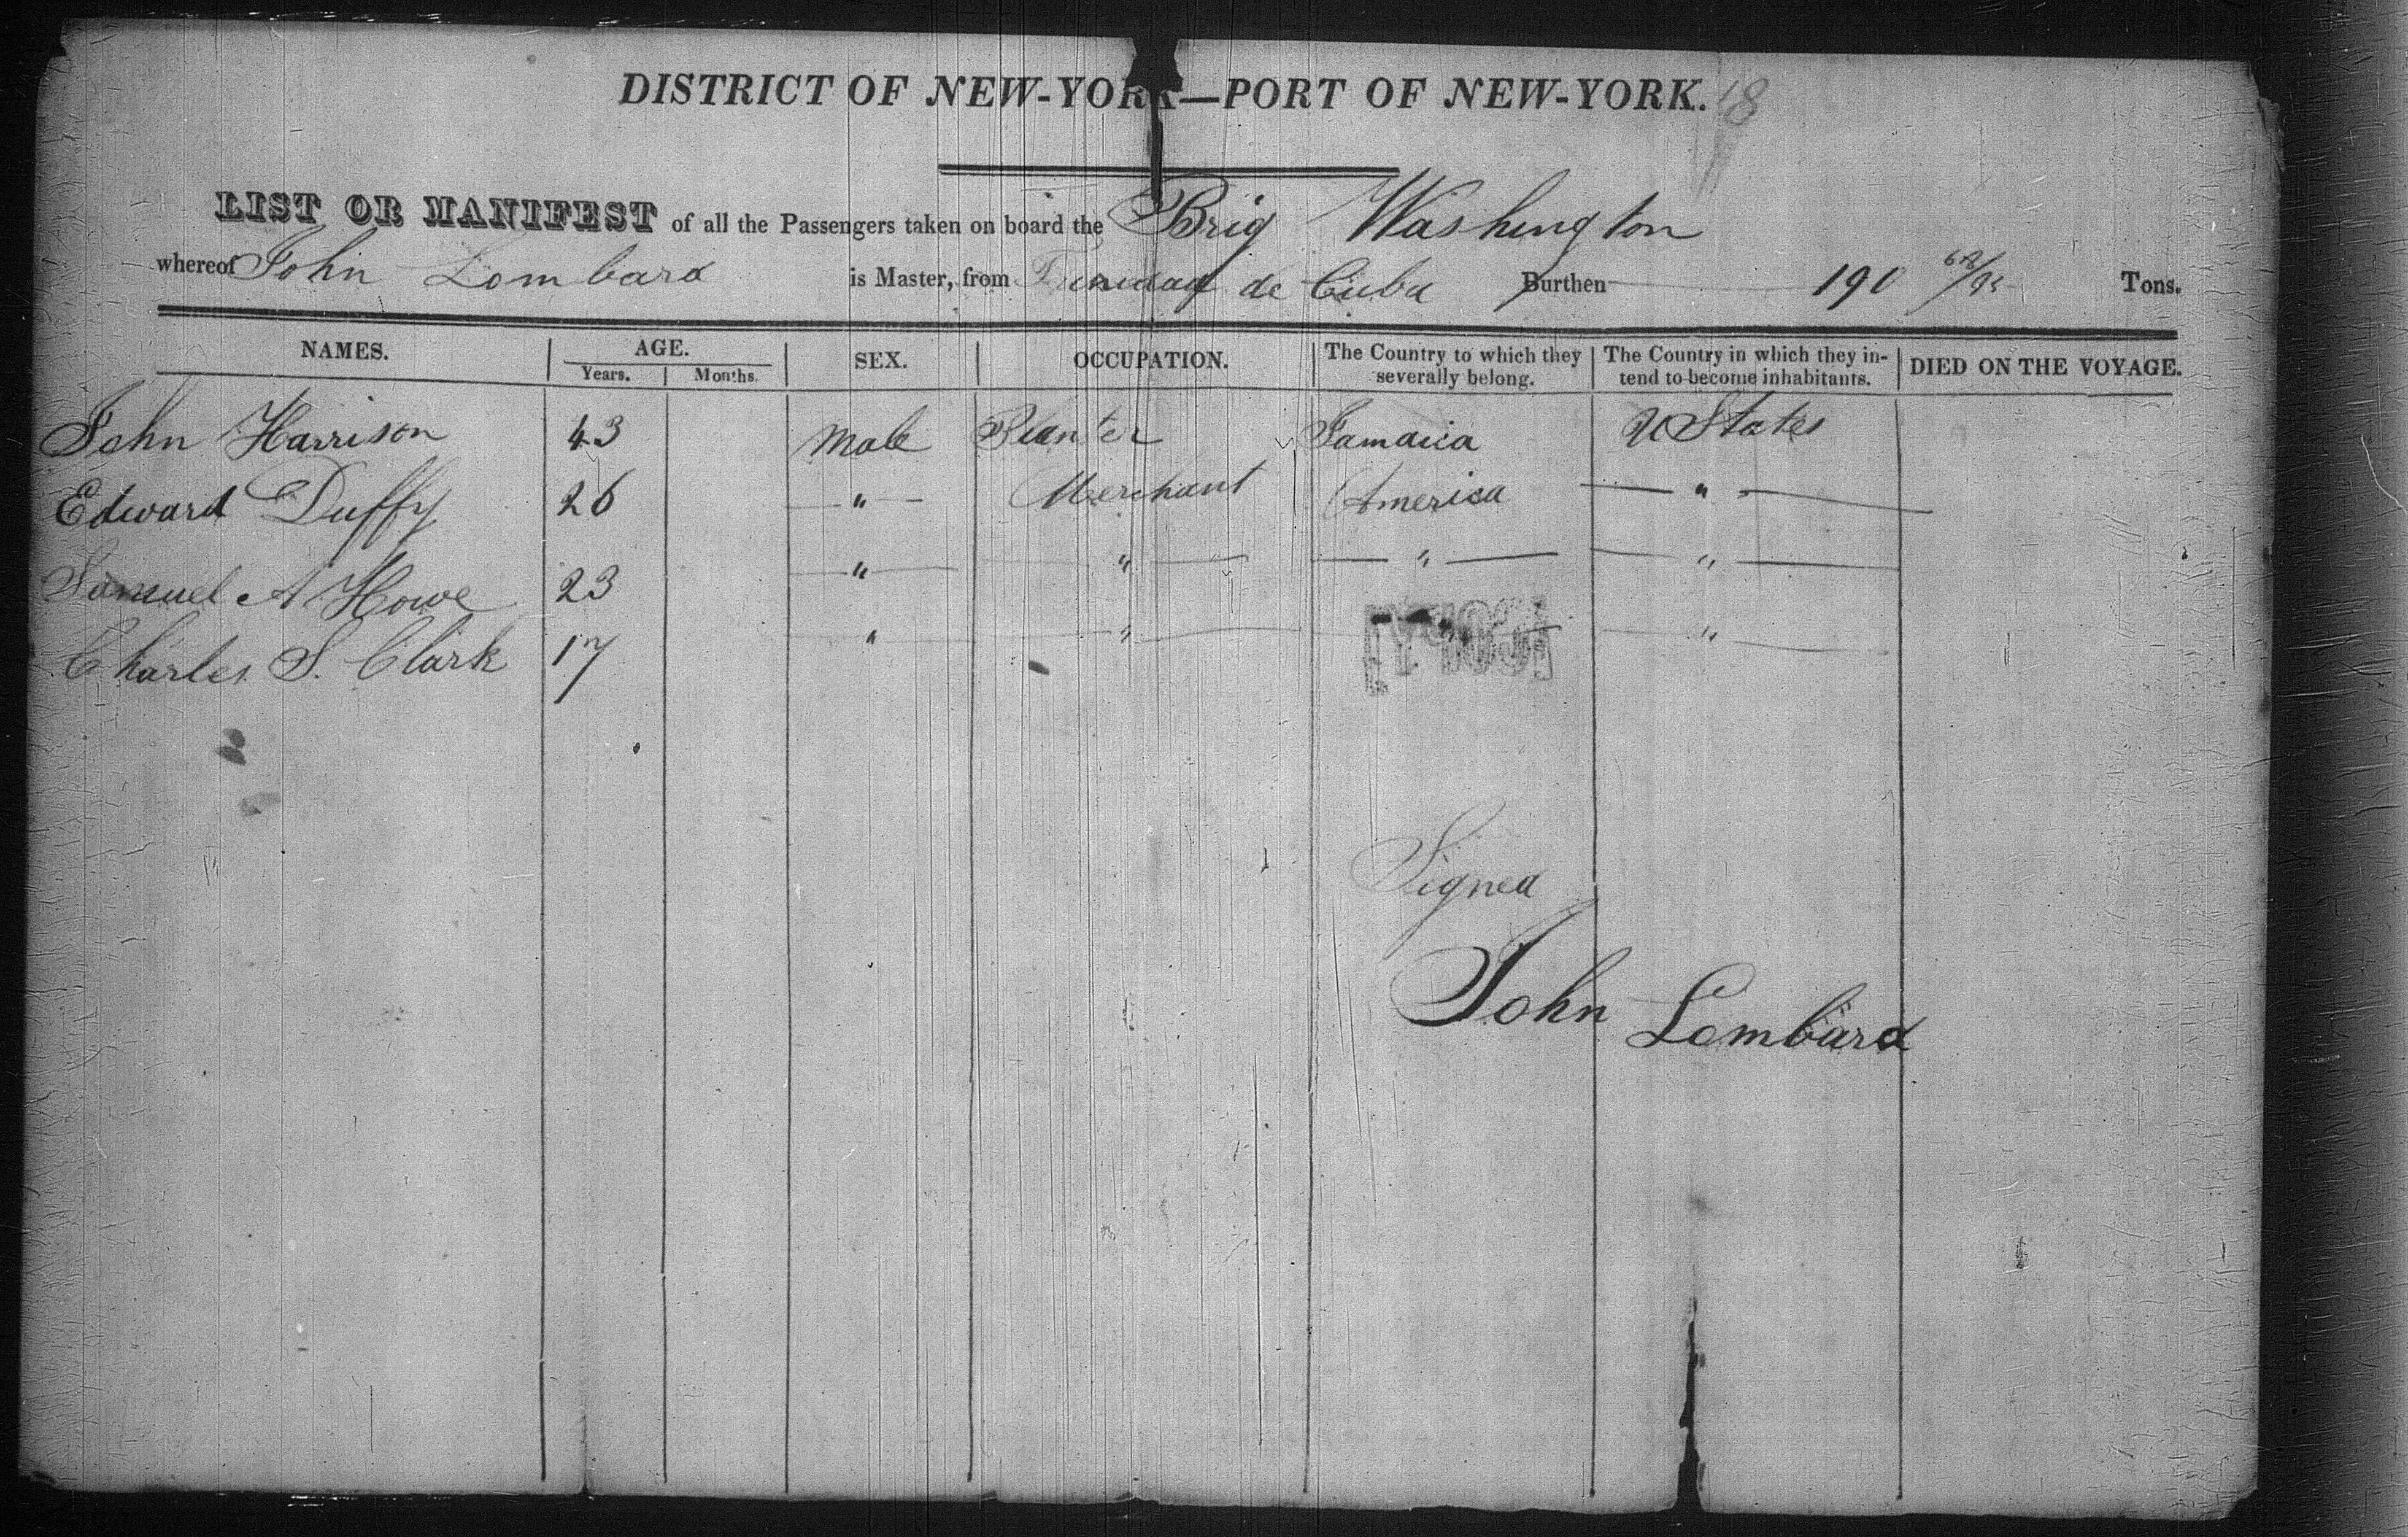 DISTRICT OF NEW-YORK—PORT OF NEW-YORK. 18
LIST OR MANIFEST of all the Passengers taken on board the Brig Washington
whereof John Lombard is Master, from Trinidad de Cuba Burthen 190 62/95 Tons.
NAMES. AGE. SEX. OCCUPATION. The Country to which they severally belong. The Country in which they intend to become inhabitants. DIED ON THE VOYAGE.
Years. Months.
John Harrison 43 Male Planter Jamaica U States
Edward Duffy 26 " Merchant America "
Samuel A Howe 23 " " " "
Charles S. Clark 17 " " " "
COPY
Signed
John Lombard